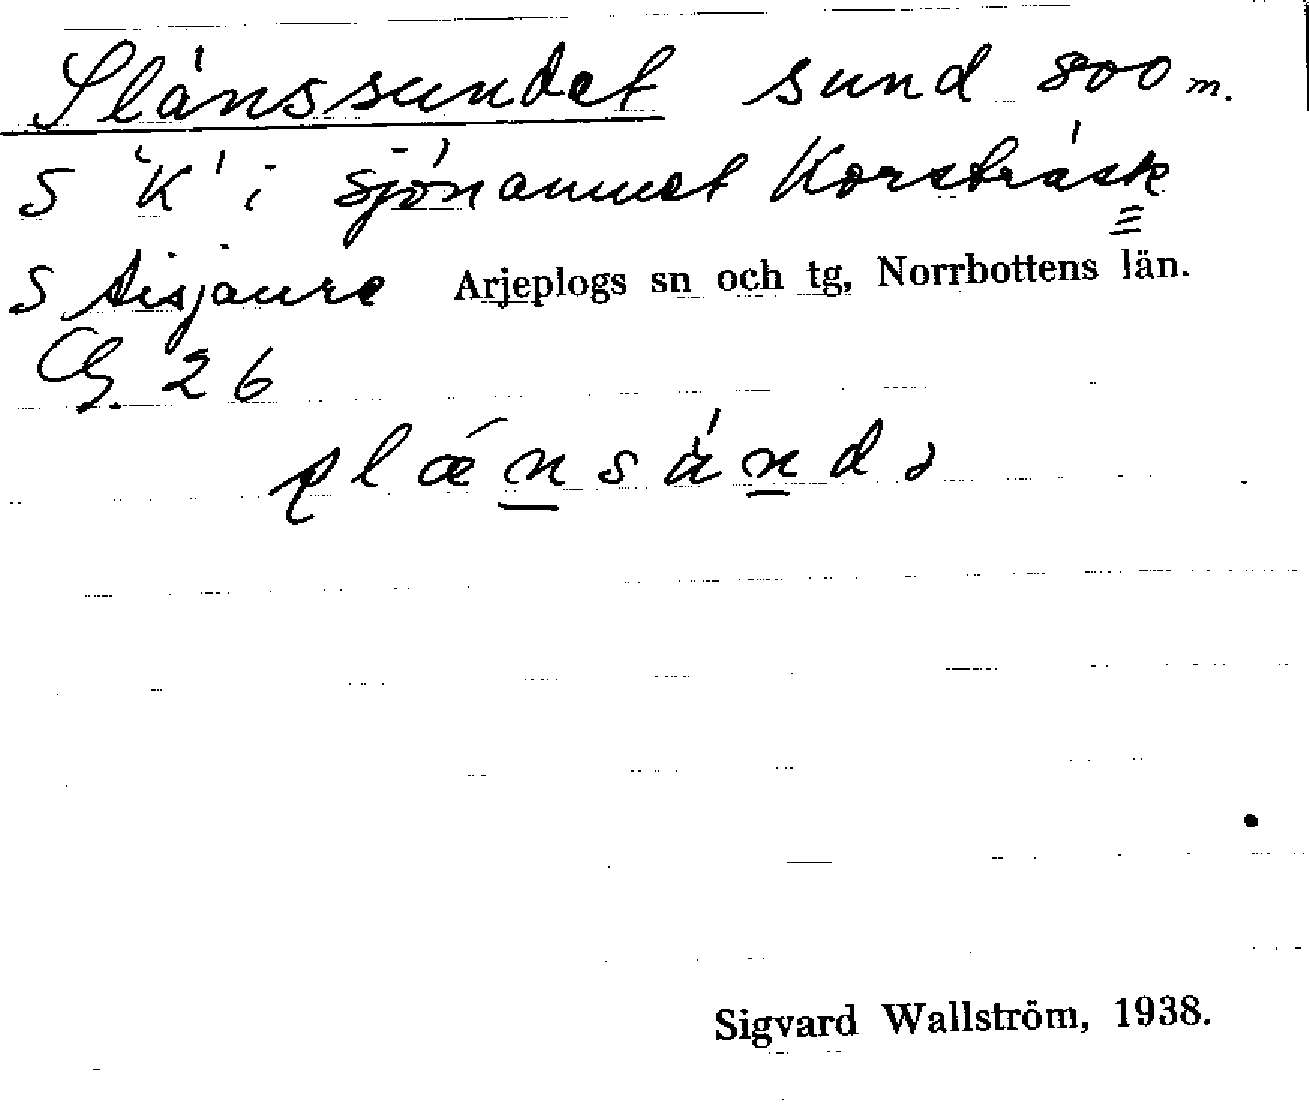 Slånssundet sund 800 m.
S "K" i sjönamnet Korsträsk
S Aisjaure Arjeplogs sn och tg, Norrbottens län.
26
Sigvard Wallström, 1938.